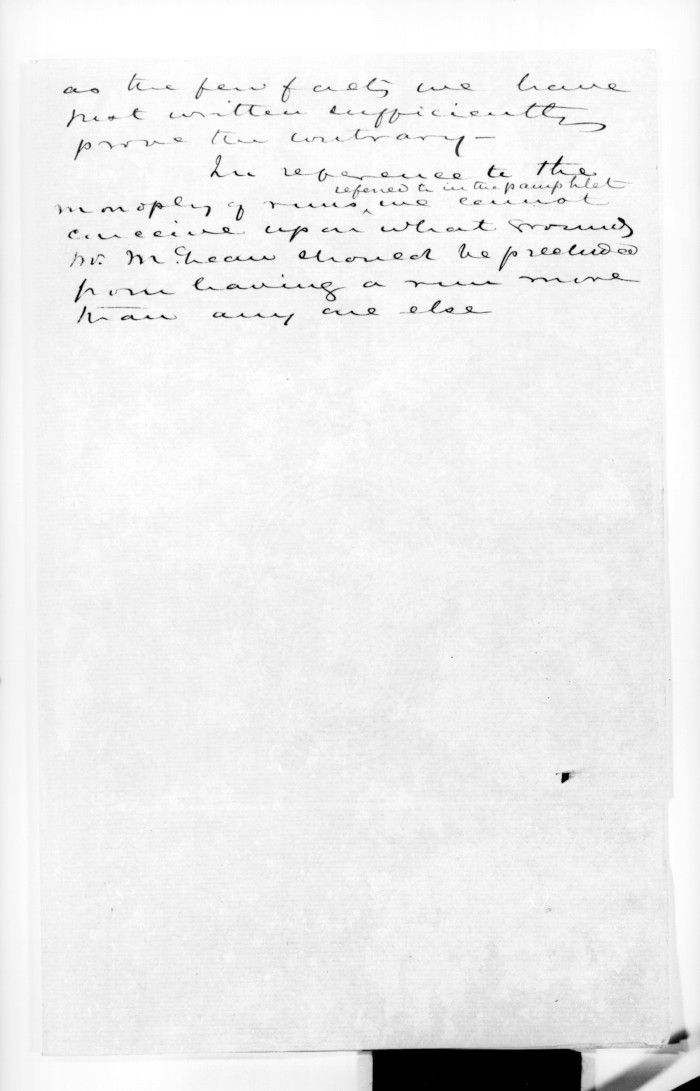 as the few facts we have
just written sufficiently
prove the contrary —
In reference to the
referred to in the pamphlet
monoply of runs, ^ we cannot
conceive upon what grounds
Mr. McLean should be precluded
from having a run more
than any one else